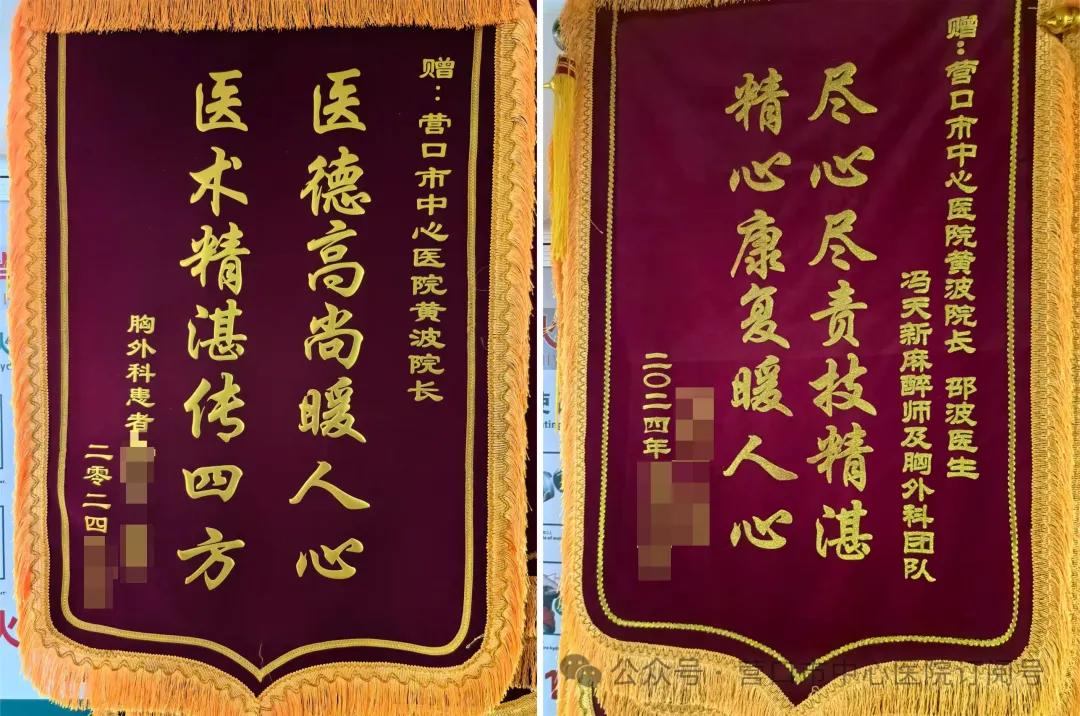 赠：营口市中心医院黄波院长
医德高尚暖人心
医术精湛传四方
胸外科患者
二零二四
赠：营口市中心医院黄波院长 邵波医生
冯天新麻醉师及胸外科团队
尽心尽责技精湛
精心康复暖人心
二〇二四年
公众号·营口市中心医院订阅号